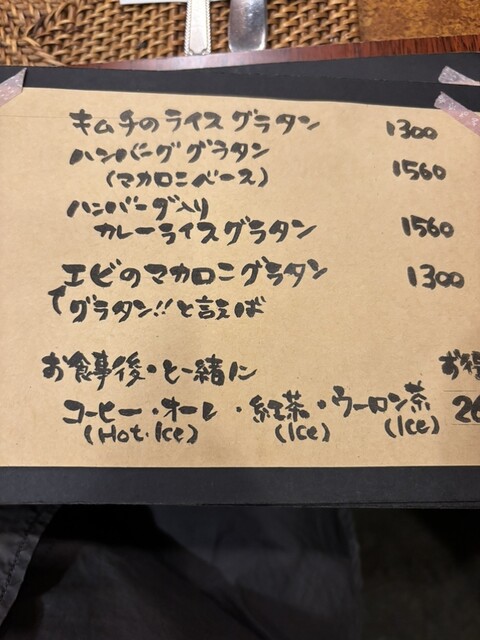 キムチのライスグラタン 1300
ハンバーググラタン
(マカロニベース) 1560
ハンバーグ入り
カレーライスグラタン 1560
エビのマカロニグラタン 1300
グラタン!!と言えば
お食事後・と一緒に
コーヒー・オーレ・紅茶・ウーロン茶
(Hot・Ice) (Ice) (Ice)